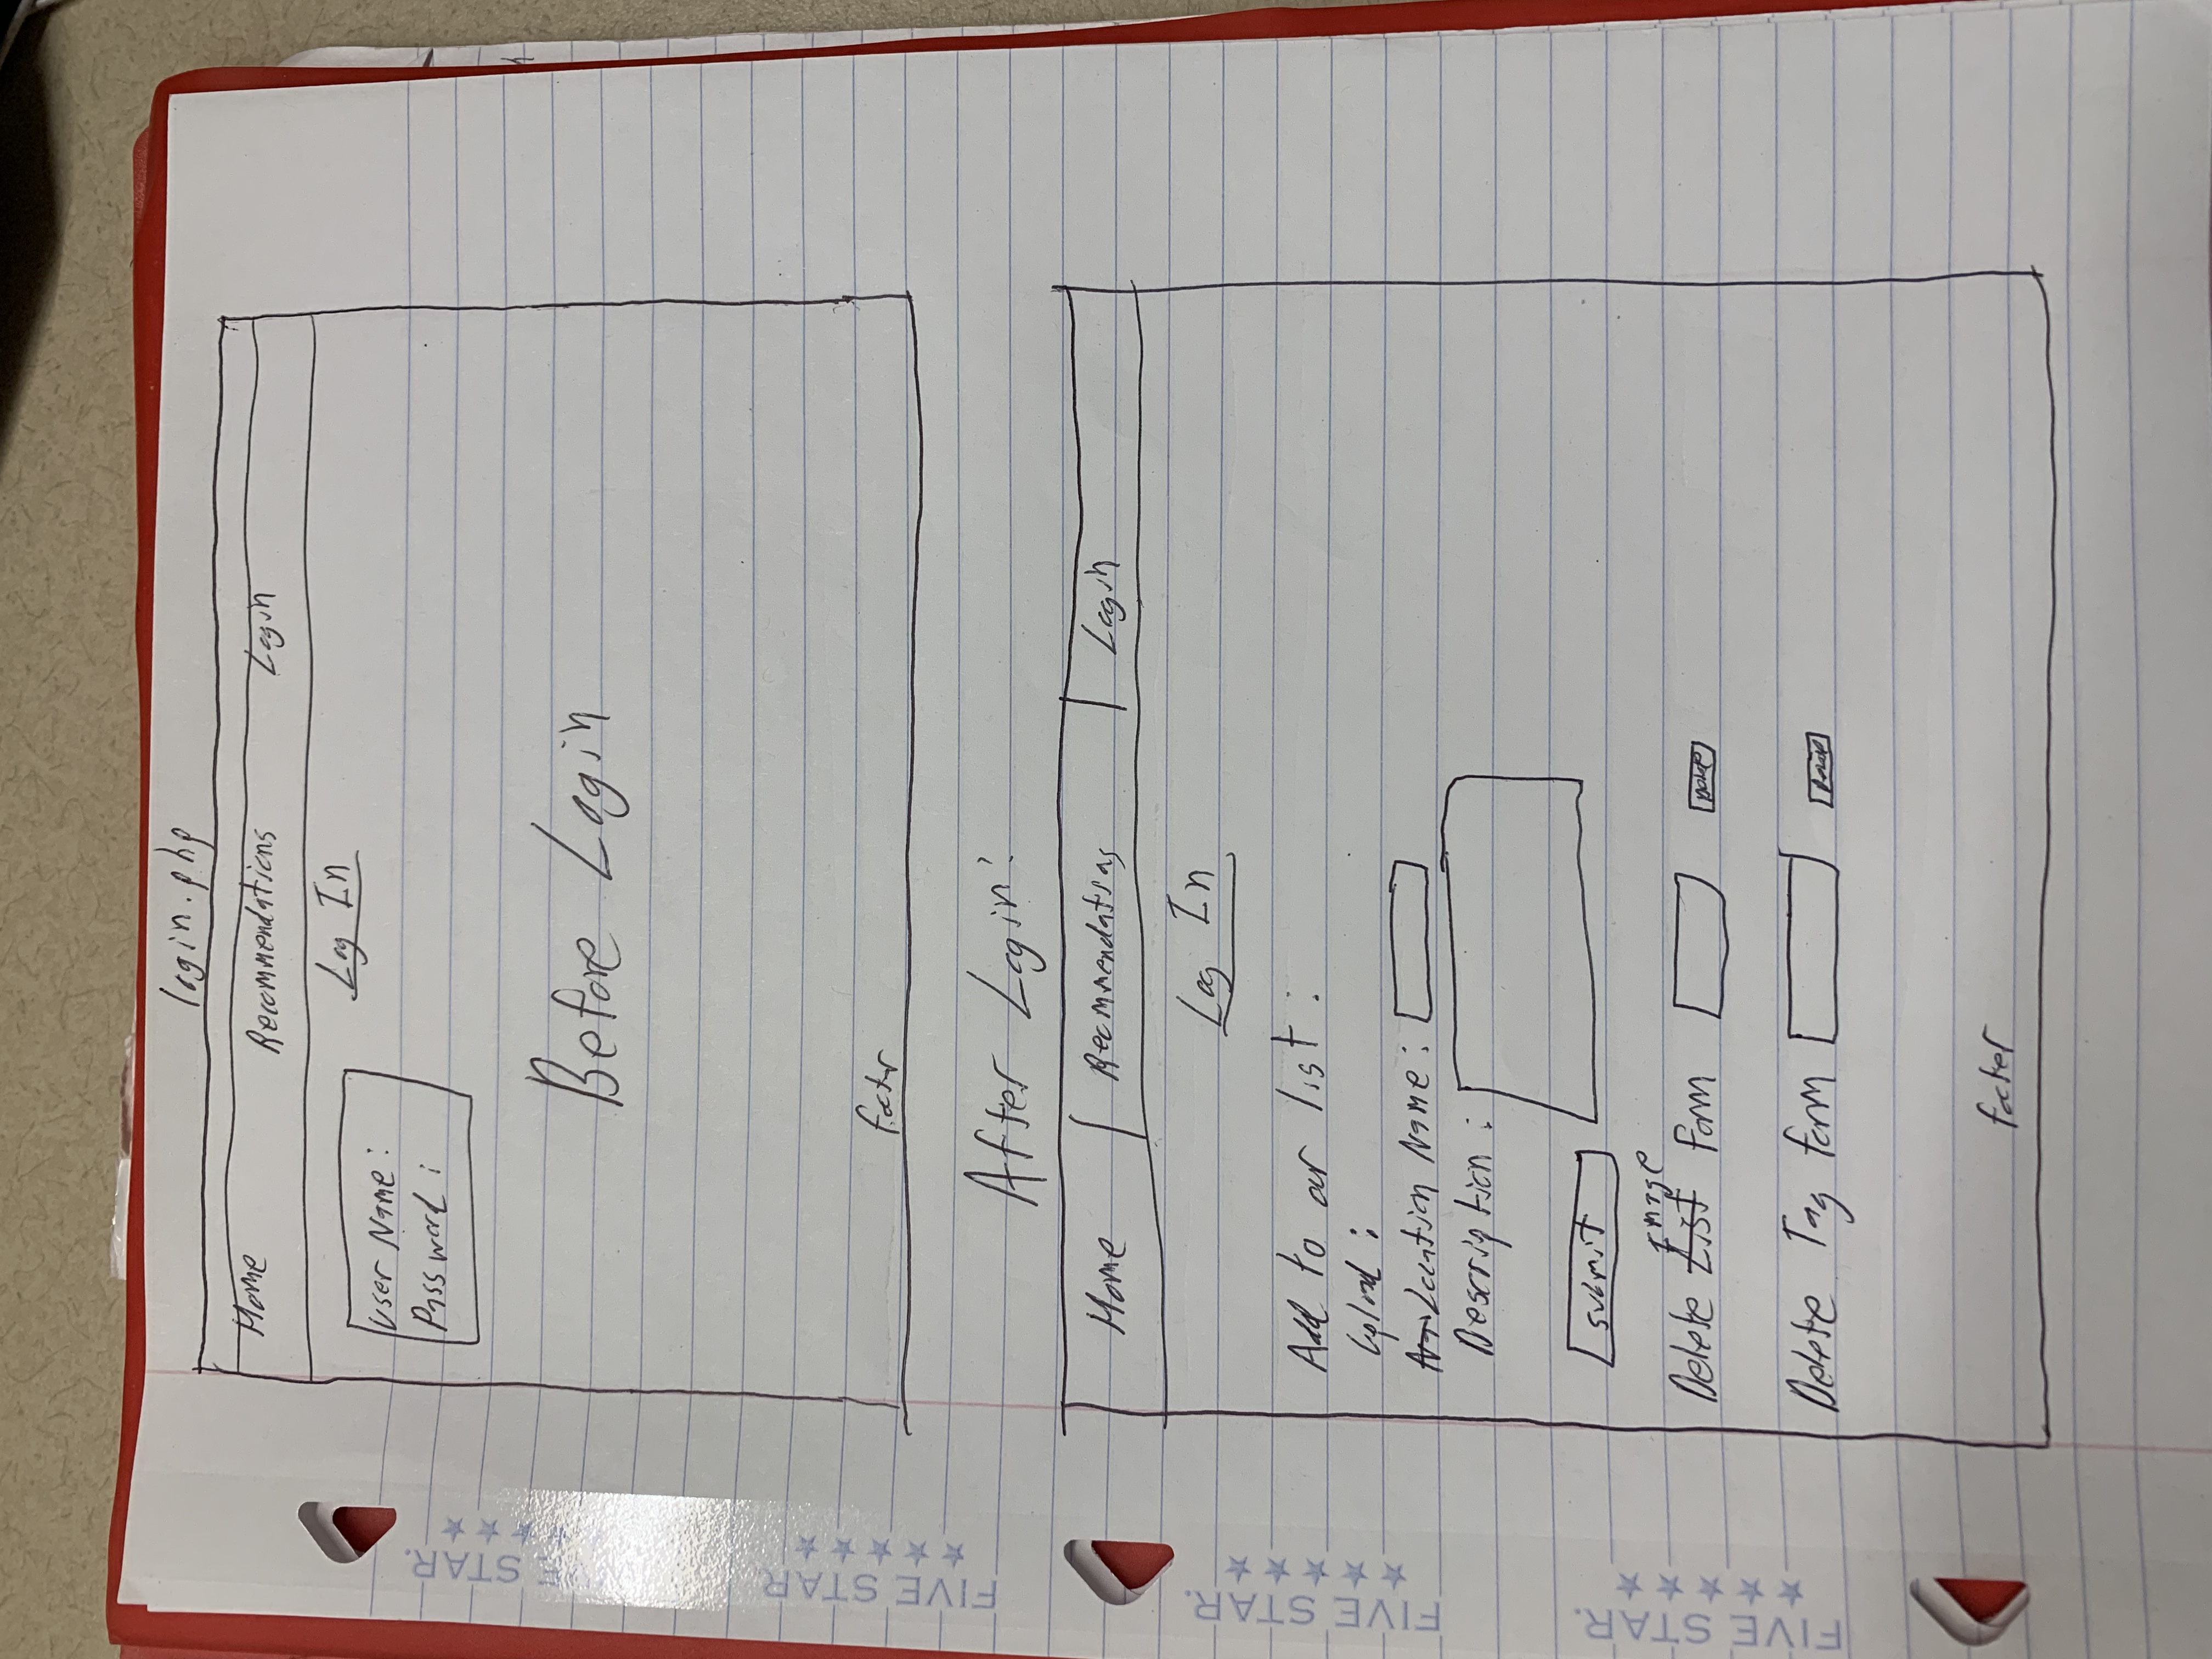 login.php
Home Recommendations Login
Log In
User Name:
Password:
Before Login
footer
After Login:
Home Recommendations Login
Log In
Add to our list:
Upload:
Location Name:
Description:
submit
Image
Delete List form Delete
Delete Tag form Delete
footer
FIVE STAR.
FIVE STAR.
FIVE STAR.
FIVE STAR.